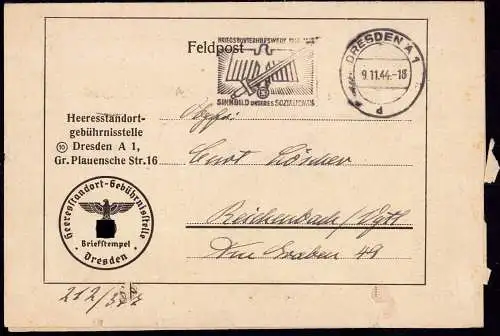 Feldpost
KRIEGSWINTERHILFSWERK
SINNBILD UNSERES SOZIALISMUS
DRESDEN A 1
9.11.44.-18
d
Heeresstandort-
gebührnisstelle
⑩ Dresden A 1,
Gr. Plauensche Str. 16
Heeresstandort-Gebührnisstelle
Briefstempel
Dresden
Curt Löscher
Reichenbach/Vgtl
Am Graben 49
212/